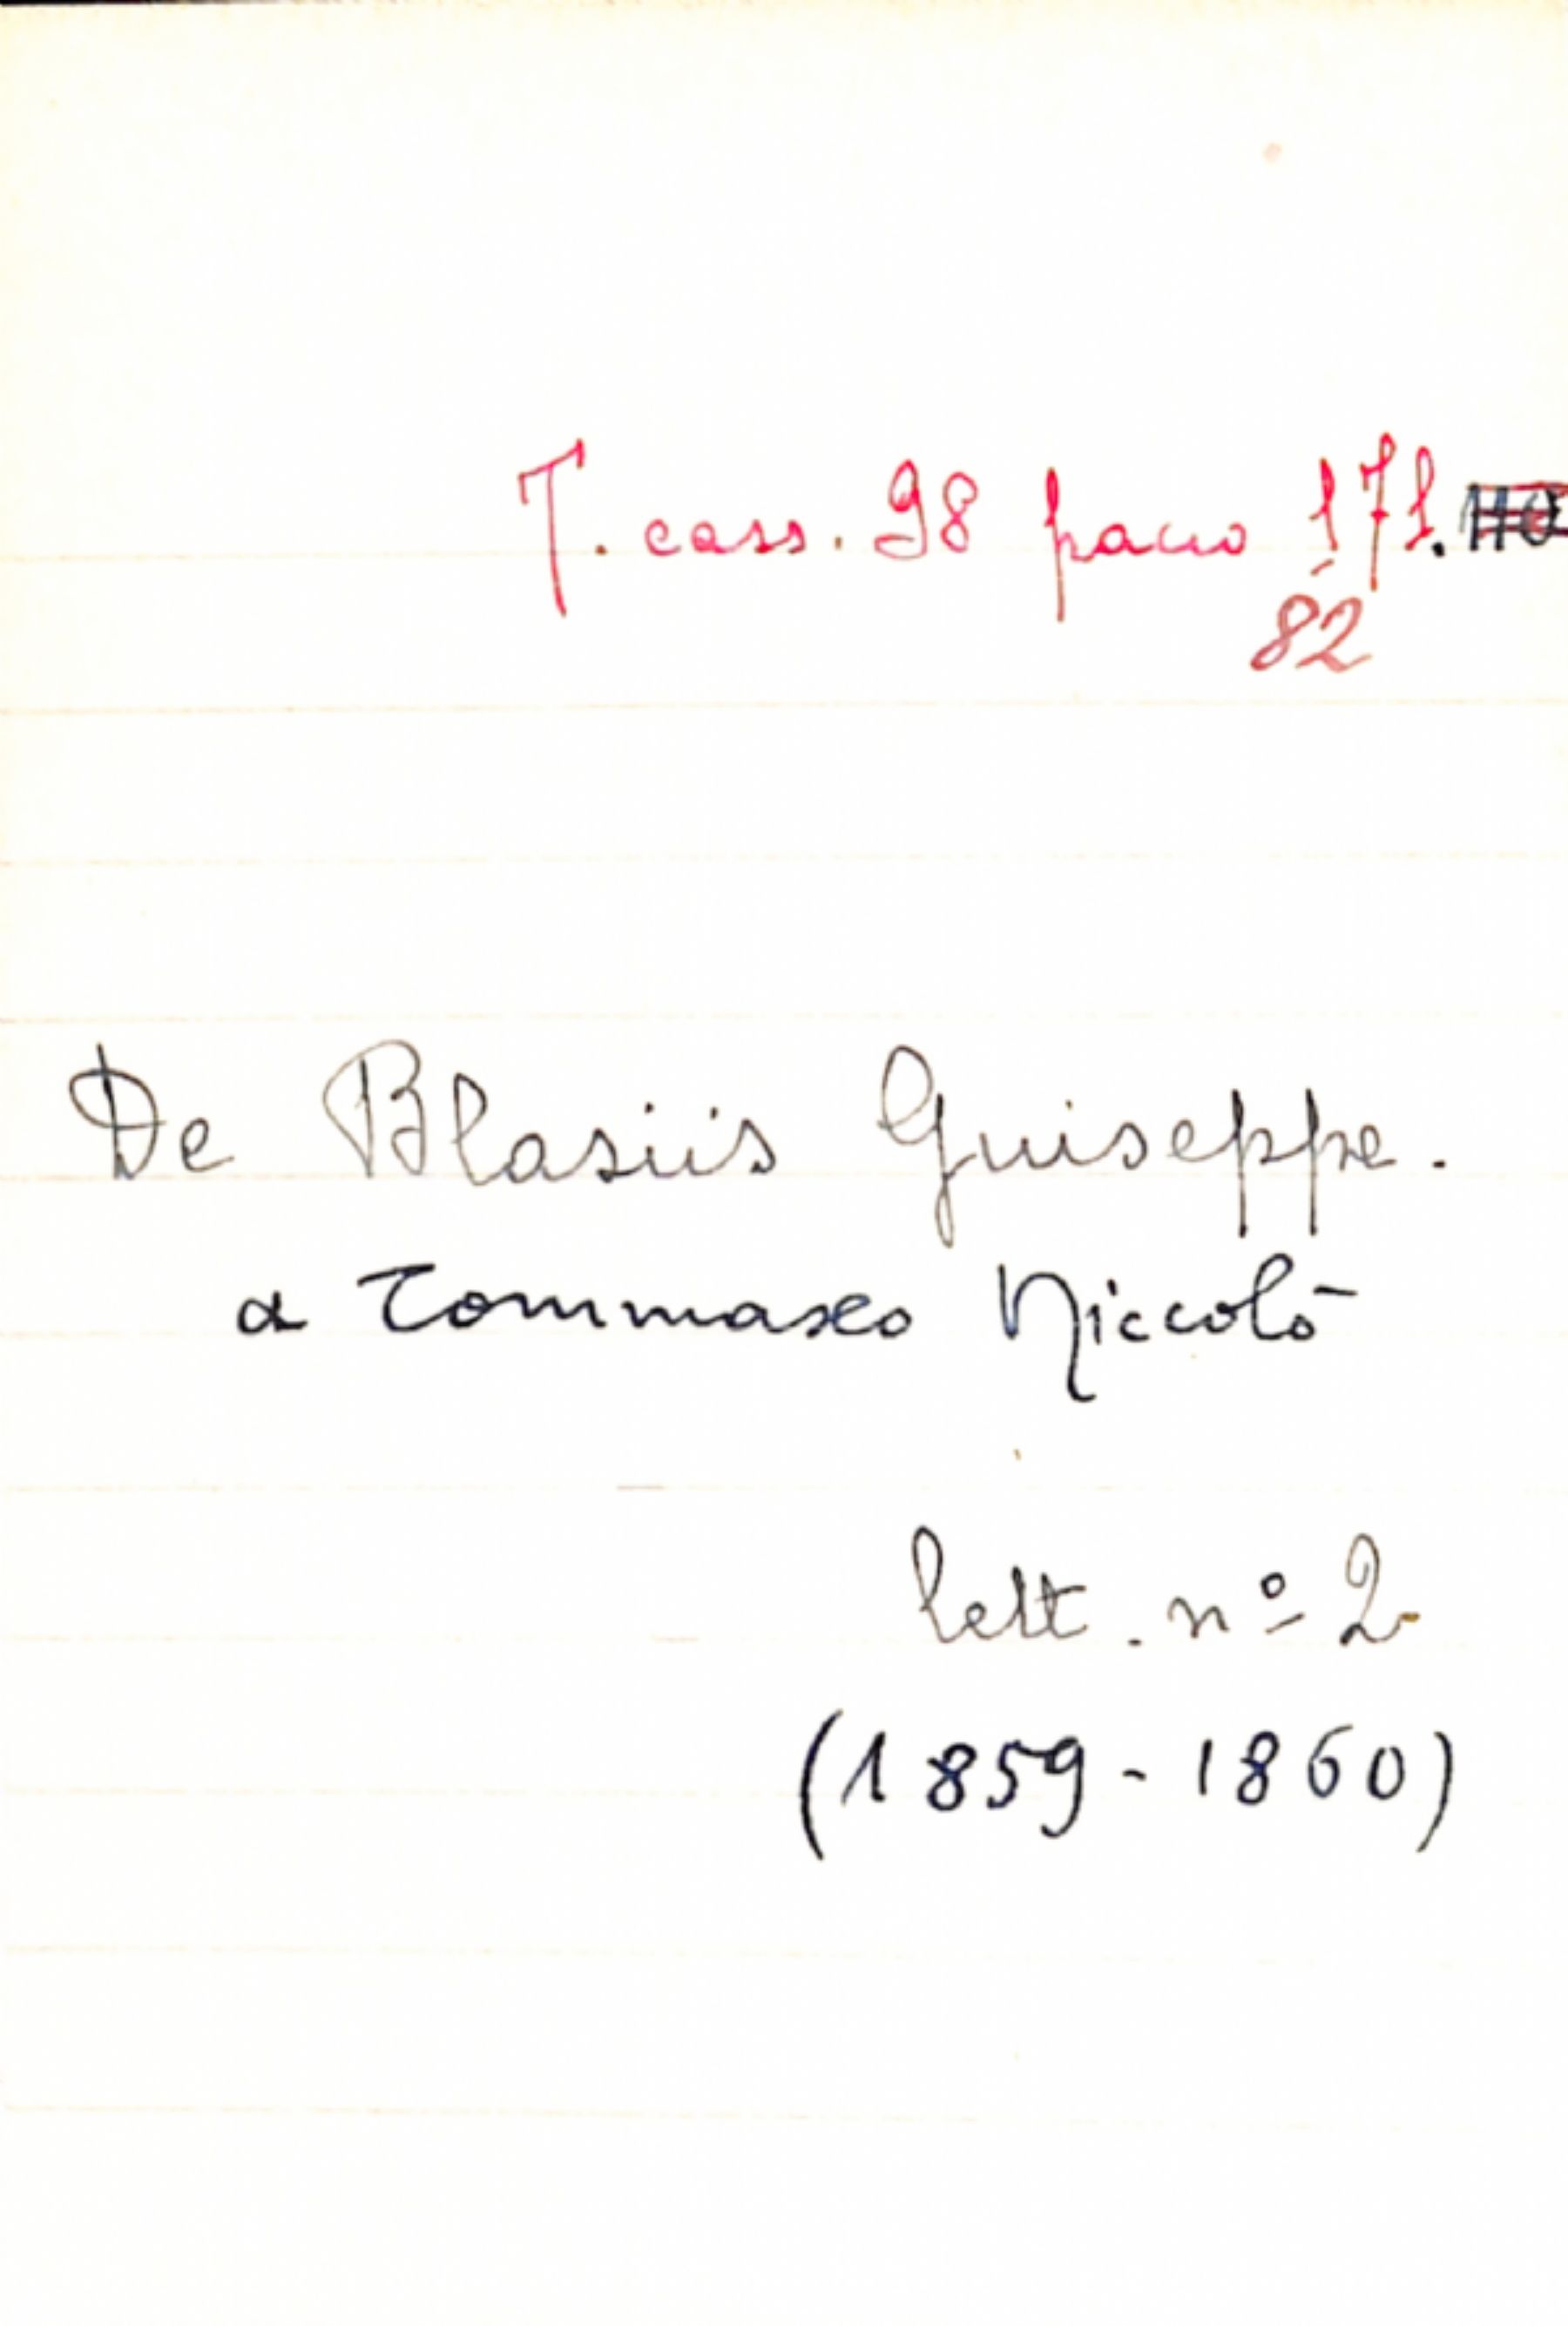 T. cass. 98 pacco 171.
82
De Blasiis Giuseppe.
a Tommaseo Niccolò
lett. nº 2
(1859-1860)